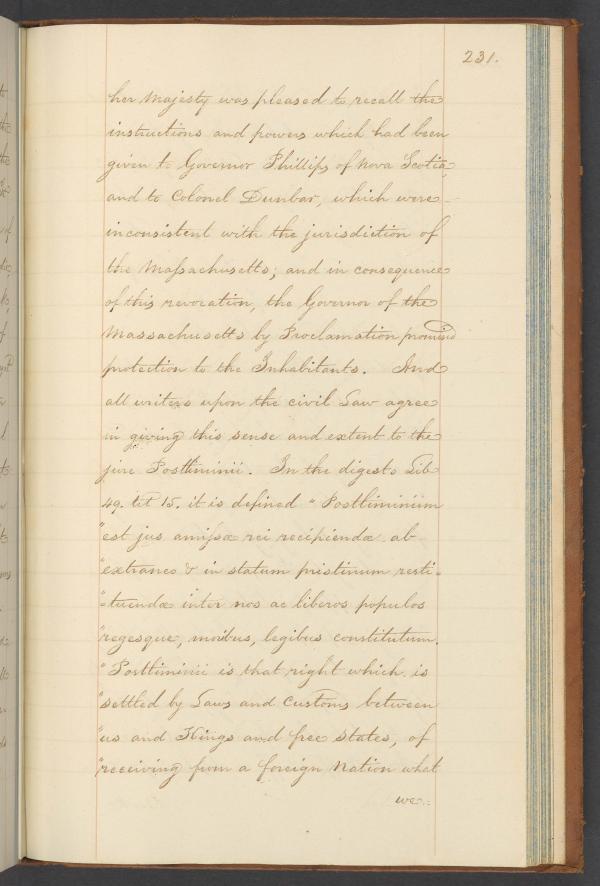 231.
her Majesty was pleased to recall the
instructions and powers which had been
given to Governor Phillips of Nova Scotia,
and to Colonel Dunbar, which were
inconsistent with the jurisdiction of
the Massachusetts; and in consequence
of this revocation, the Governor of the
Massachusetts by Proclamation promised
protection to the Inhabitants. And
all writers upon the civil Law agree
in giving this sense and extent to the
jure Postliminii. In the digests Lib
49. tit 15. it is defined "Postliminium
"est jus amissæ rei recipiendæ ab
"extraneo & in statum pristinum resti-
"=tuendæ inter nos ac liberos populos
"regesque, moribus, legibus constitutum.
"Postliminii is that right which is
"settled by Laws and Customs between
"us and Kings and free States, of
"receiving from a foreign Nation what
we